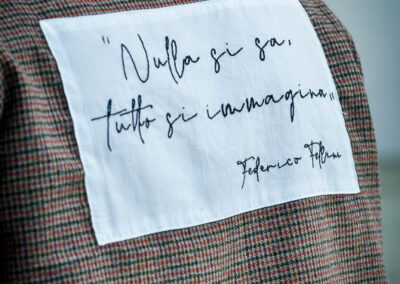 "Nulla si sa,
tutto si immagina„
Federico Fellini